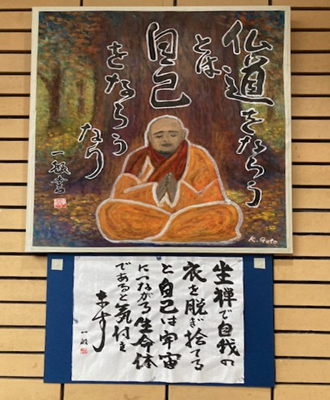 仏道をならう
とは
自己
をならう
なり
K. Goto
坐禅で自我の
衣を脱ぎ捨てる
と自己は宇宙
につながる生命体
であると気付き
ます